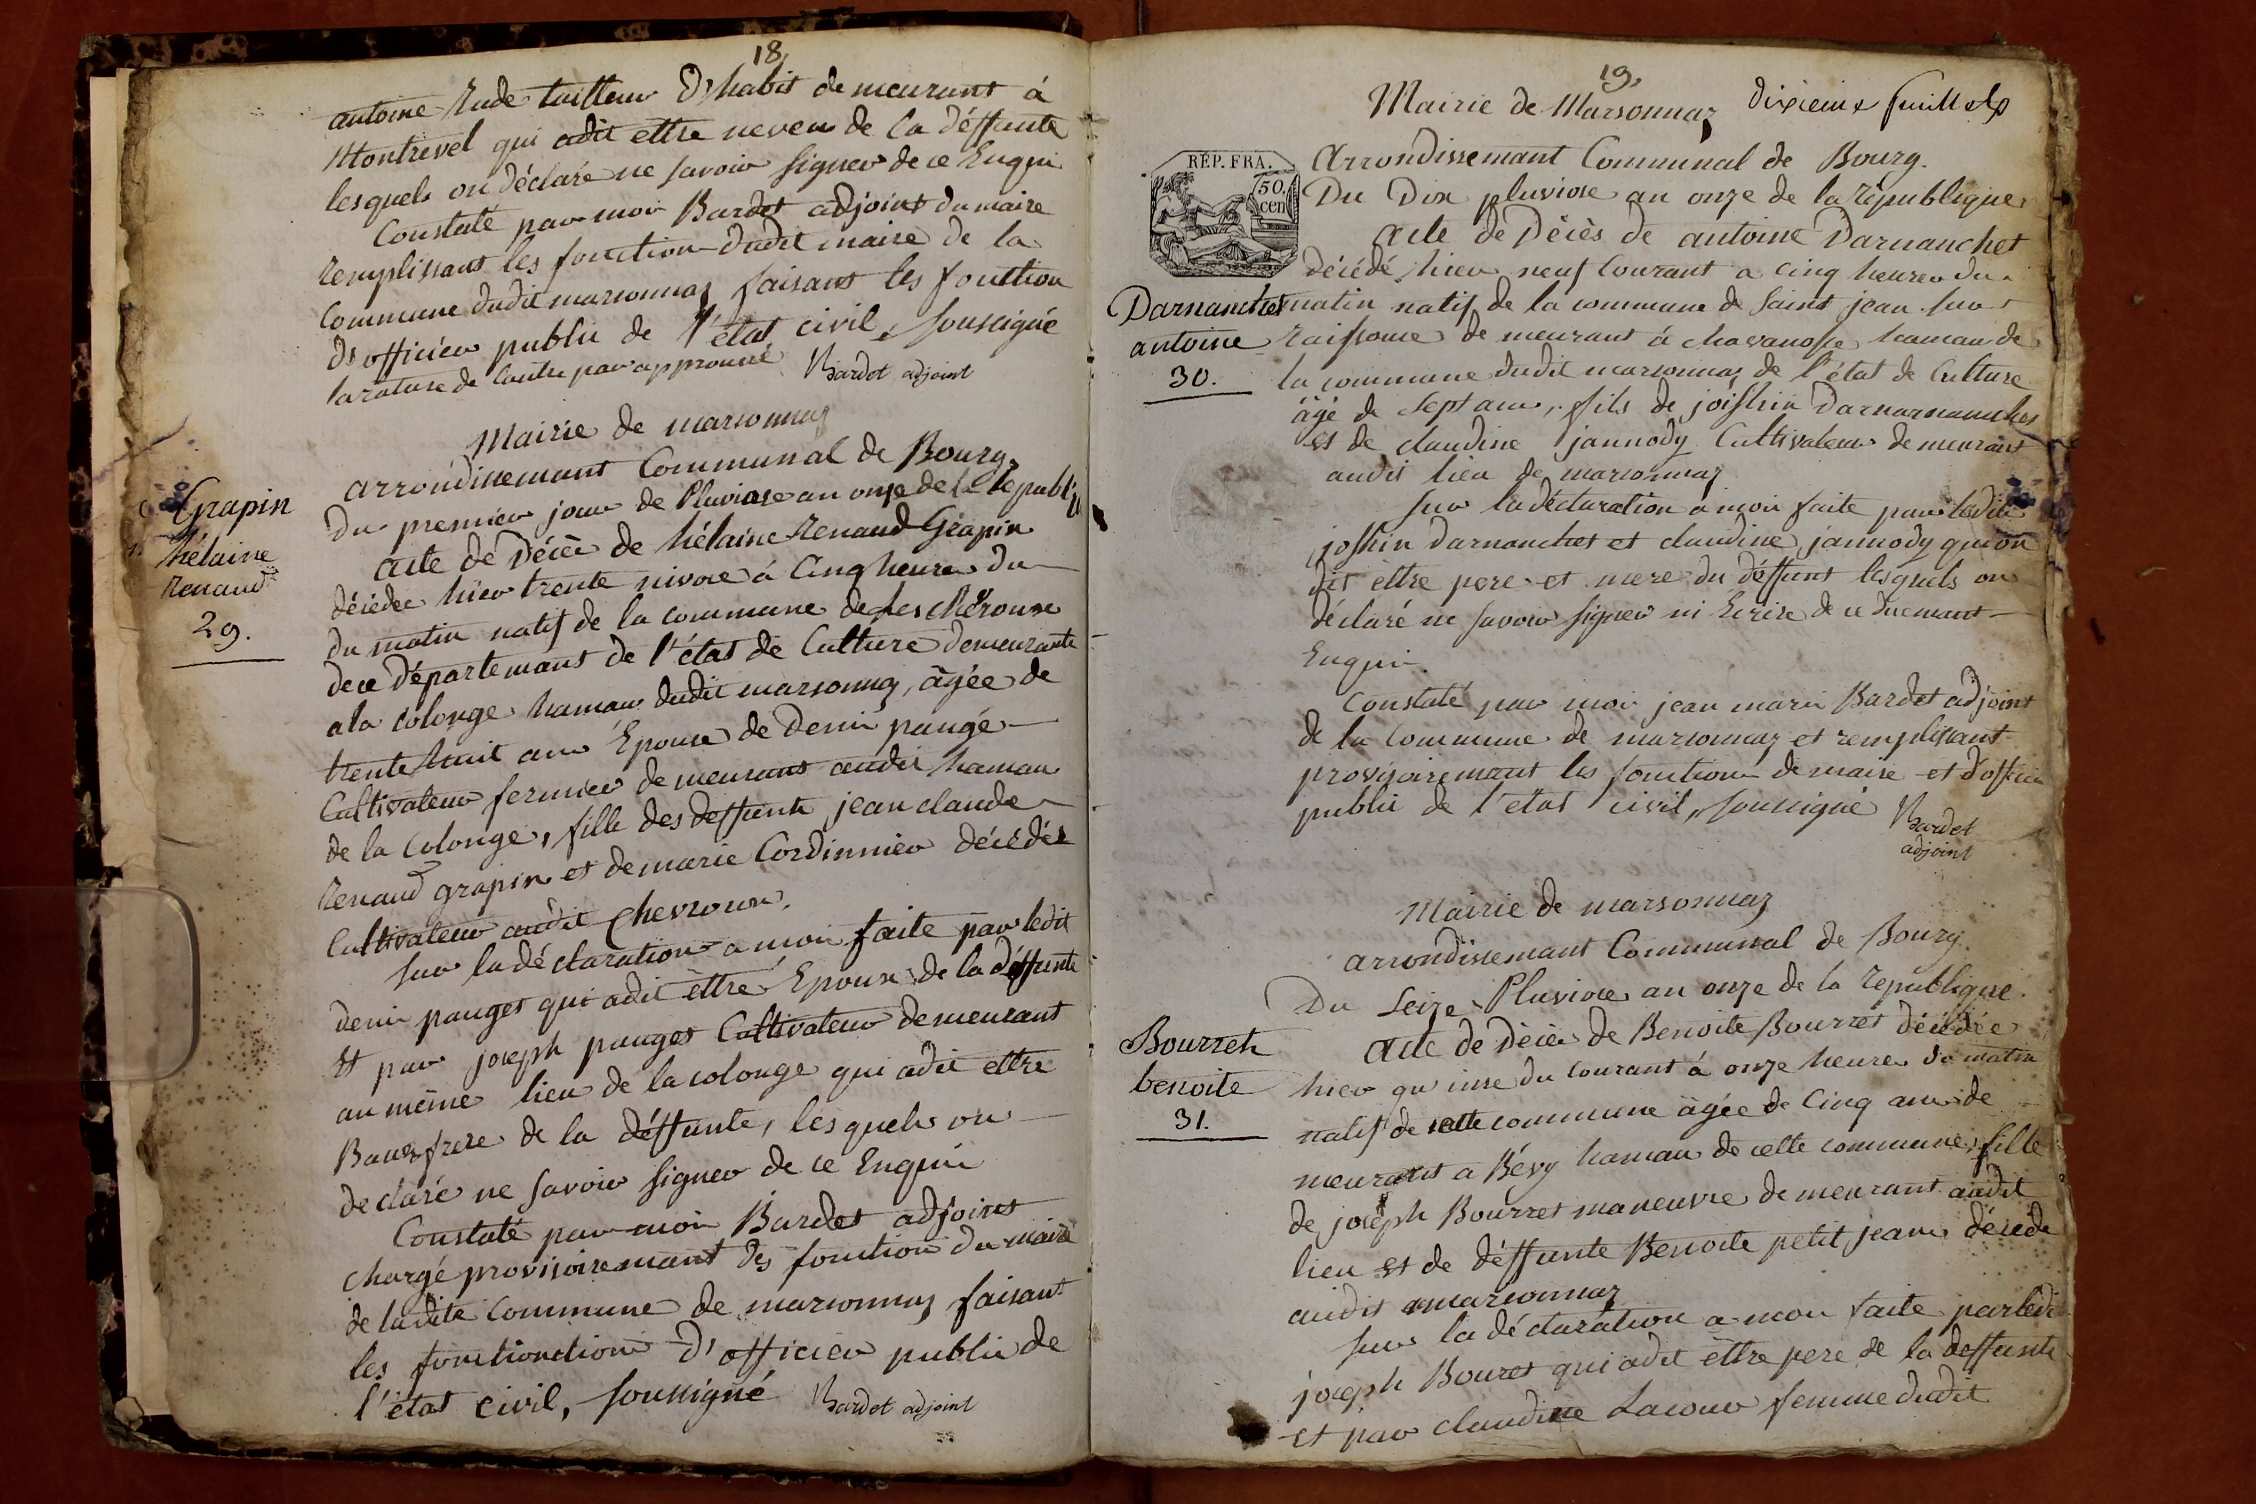 18
antoine Rude tailleur d'habit demeurant à
Montrevel qui adit ettre neveu de la déffunte
lesquels on déclaré ne savoir signer de ce Enqui
Constaté par moi Bardet adjoint du maire
remplissant les fonction dudit maire de la
Commune dudit marsonnaz faisant les fonction
d'officier publie de l'état civil, soussigné
larature de contre par approuvé Bardet adjoint
Mairie de marsonnaz
arrondissemant Communal de Bourg
Du premier jour de Pluviose an onze de la Republi
acte de Décès de hélaine Renaud Grapin
Grapin
hélaine
Renaud
29.
décédée hier trente nivose à Cinq heures du
du matin natif de la commune de
de ce Départemant de l'état de Culture demeurante
ala colonge hamau dudit marsonnaz, âgée de
trente huit ans Epouse de Denis pangé
Cultivateur fermier demeurant audit hamau
de la Colonge, fille des deffunts jean claude
Renaud grapin et demarie Cordinnier décédés
Cultivateur audit Chevroux.
sur la déclaration a moi faite par ledit
denis panget qui adit êttre Epoux de la déffunte
et par joseph panget Cultivateur demeurant
au même lieu de la colonge qui adit ettre
Baux frere de la déffunte, lesquels on
declaré ne savoir signer de ce Enquis
Constaté par moi Bardet adjoint
chargé provisoiremant des fonction du maire
de ladite Commune de marsonnaz faisant
les fonctionction d'officier publie de
l'état civil, soussigné Bardet adjoint
19
Mairie de Marsonnaz dixieme feuillet
REP. FRA.
50.
cen
Arrondissemant Communal de Bourg.
Du Dix pluviose an onze de la république
acte de Décès de antoine Darnanchet
décédé hier neuf Courant a cinq heures du
Darnanchet
antoine
30.
matin natif de la commune de saint jean sur
raissouse demeurant à chavanosse hamau de
la commune dudit marsonnaz de l'état de Culture
âgé de sept ans, fils de Darnarnanches
et de claudine jannody Cultivateur demeurant
audit lieu de marsonnaz
sur la déclaration a moi faite par ledit
Darnanchet et claudine jannody qui on
dit êttre pere et mere du déffunt lesquels on
déclaré ne savoir signer ni Ecrire de ce
Enquis
Constaté par moi jean marie Bardet adjoint
de la Commune de marsonnaz et remplissant
provisoiremant les fonction de maire et d'officie
publie de l'état civil, soussigné Bardet
adjoint
Mairie de marsonnaz
arrondissemant Communal de Bourg.
Du Seize Pluviose an onze de la république
acte de Décès de Benoite Bourret décédée
Bourret
benoite
31.
hier quinse du courant à onze heures du matin
natif de cette commune âgée de Cinq ans de
meurant a Bévy hamau de cette commune, fille
de joseph Bourret maneuvre demeurant audit
lieu et de déffunte Benoite petit jean décédé
audit marsonnaz
sur la déclaration a moi faite par ledit
joseph Bouret qui adit êttre pere de la deffunte
et par claudine Lacour femme dudit